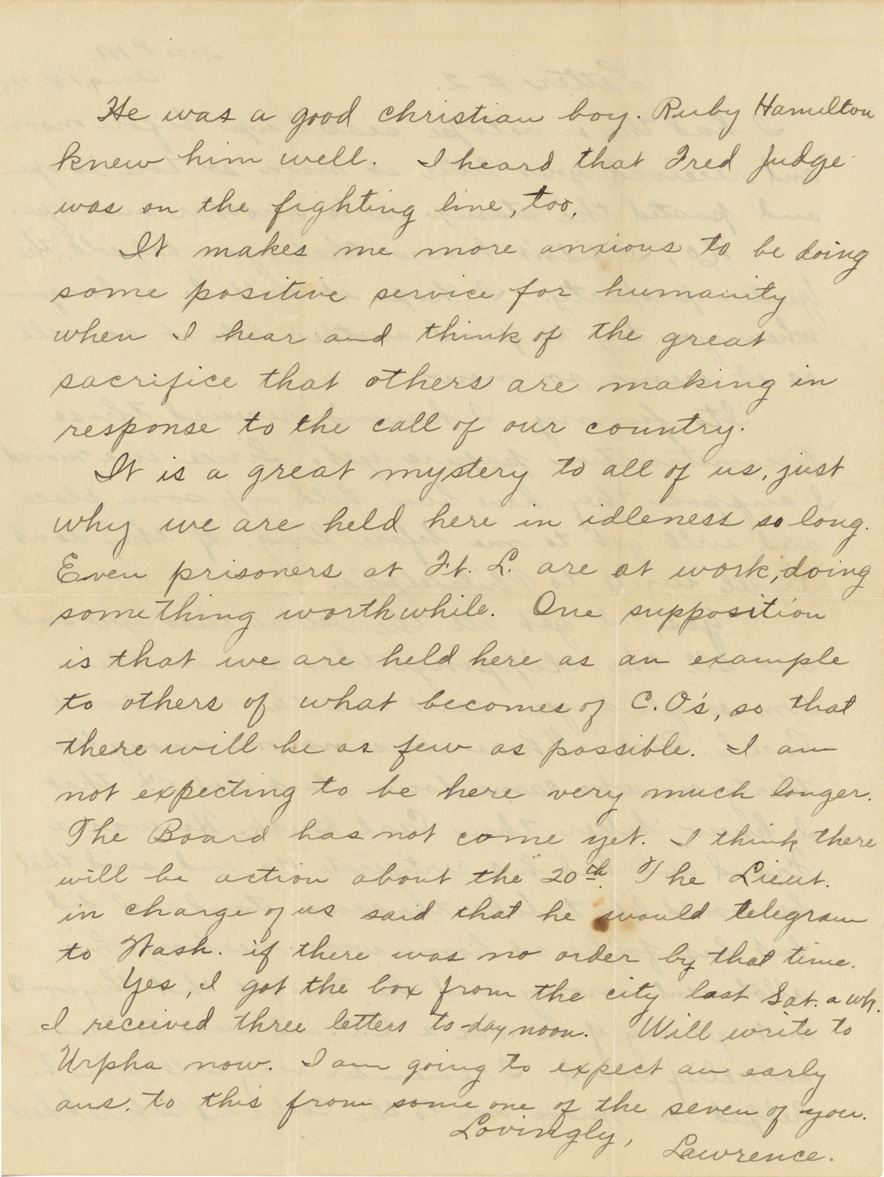 He was a good christian boy. Ruby Hamilton
knew him well. I heard that Fred Judge
was on the fighting line, too,
It makes me more anxious to be doing
some positive service for humanity
when I hear and think of the great
sacrifice that others are making in
response to the call of our country.
It is a great mystery to all of us, just
why we are held here in idleness so long.
Even prisoners at Ft. L. are at work, doing
something worth while. One supposition
is that we are held here as an example
to others of what becomes of C.O's, so that
there will be as few as possible. I am
not expecting to be here very much longer.
The Board has not come yet. I think there
will be action about the 20th. The Lieut.
in charge of us said that he would telegram
to Wash. if there was no order by that time.
Yes, I got the box from the city last Sat. a wk.
I received three letters to-day noon. Will write to
Urpha now. I am going to expect an early
ans. to this from some one of the seven of you.
Lovingly,
Lawrence.